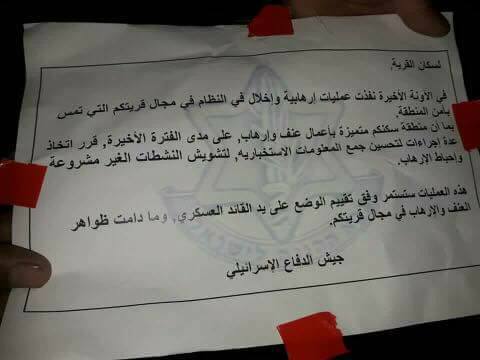 لسكان القرية,
في الآونة الأخيرة نفذت عمليات إرهابية وإخلال في النظام في مجال قريتكم التي تمس
بأمن المنطقة.
بما أن منطقة سكنكم متميزة بأعمال عنف وإرهاب, على مدى الفترة الأخيرة, قرر اتخاذ
عدة إجراءات لتحسين جمع المعلومات الاستخبارية, لتشويش النشطات الغير مشروعة
وإحباط الإرهاب.
هذه العمليات ستستمر وفق تقييم الوضع على يد القائد العسكري, وما دامت ظواهر
العنف والإرهاب في مجال قريتكم.
جيش الدفاع الإسرائيلي